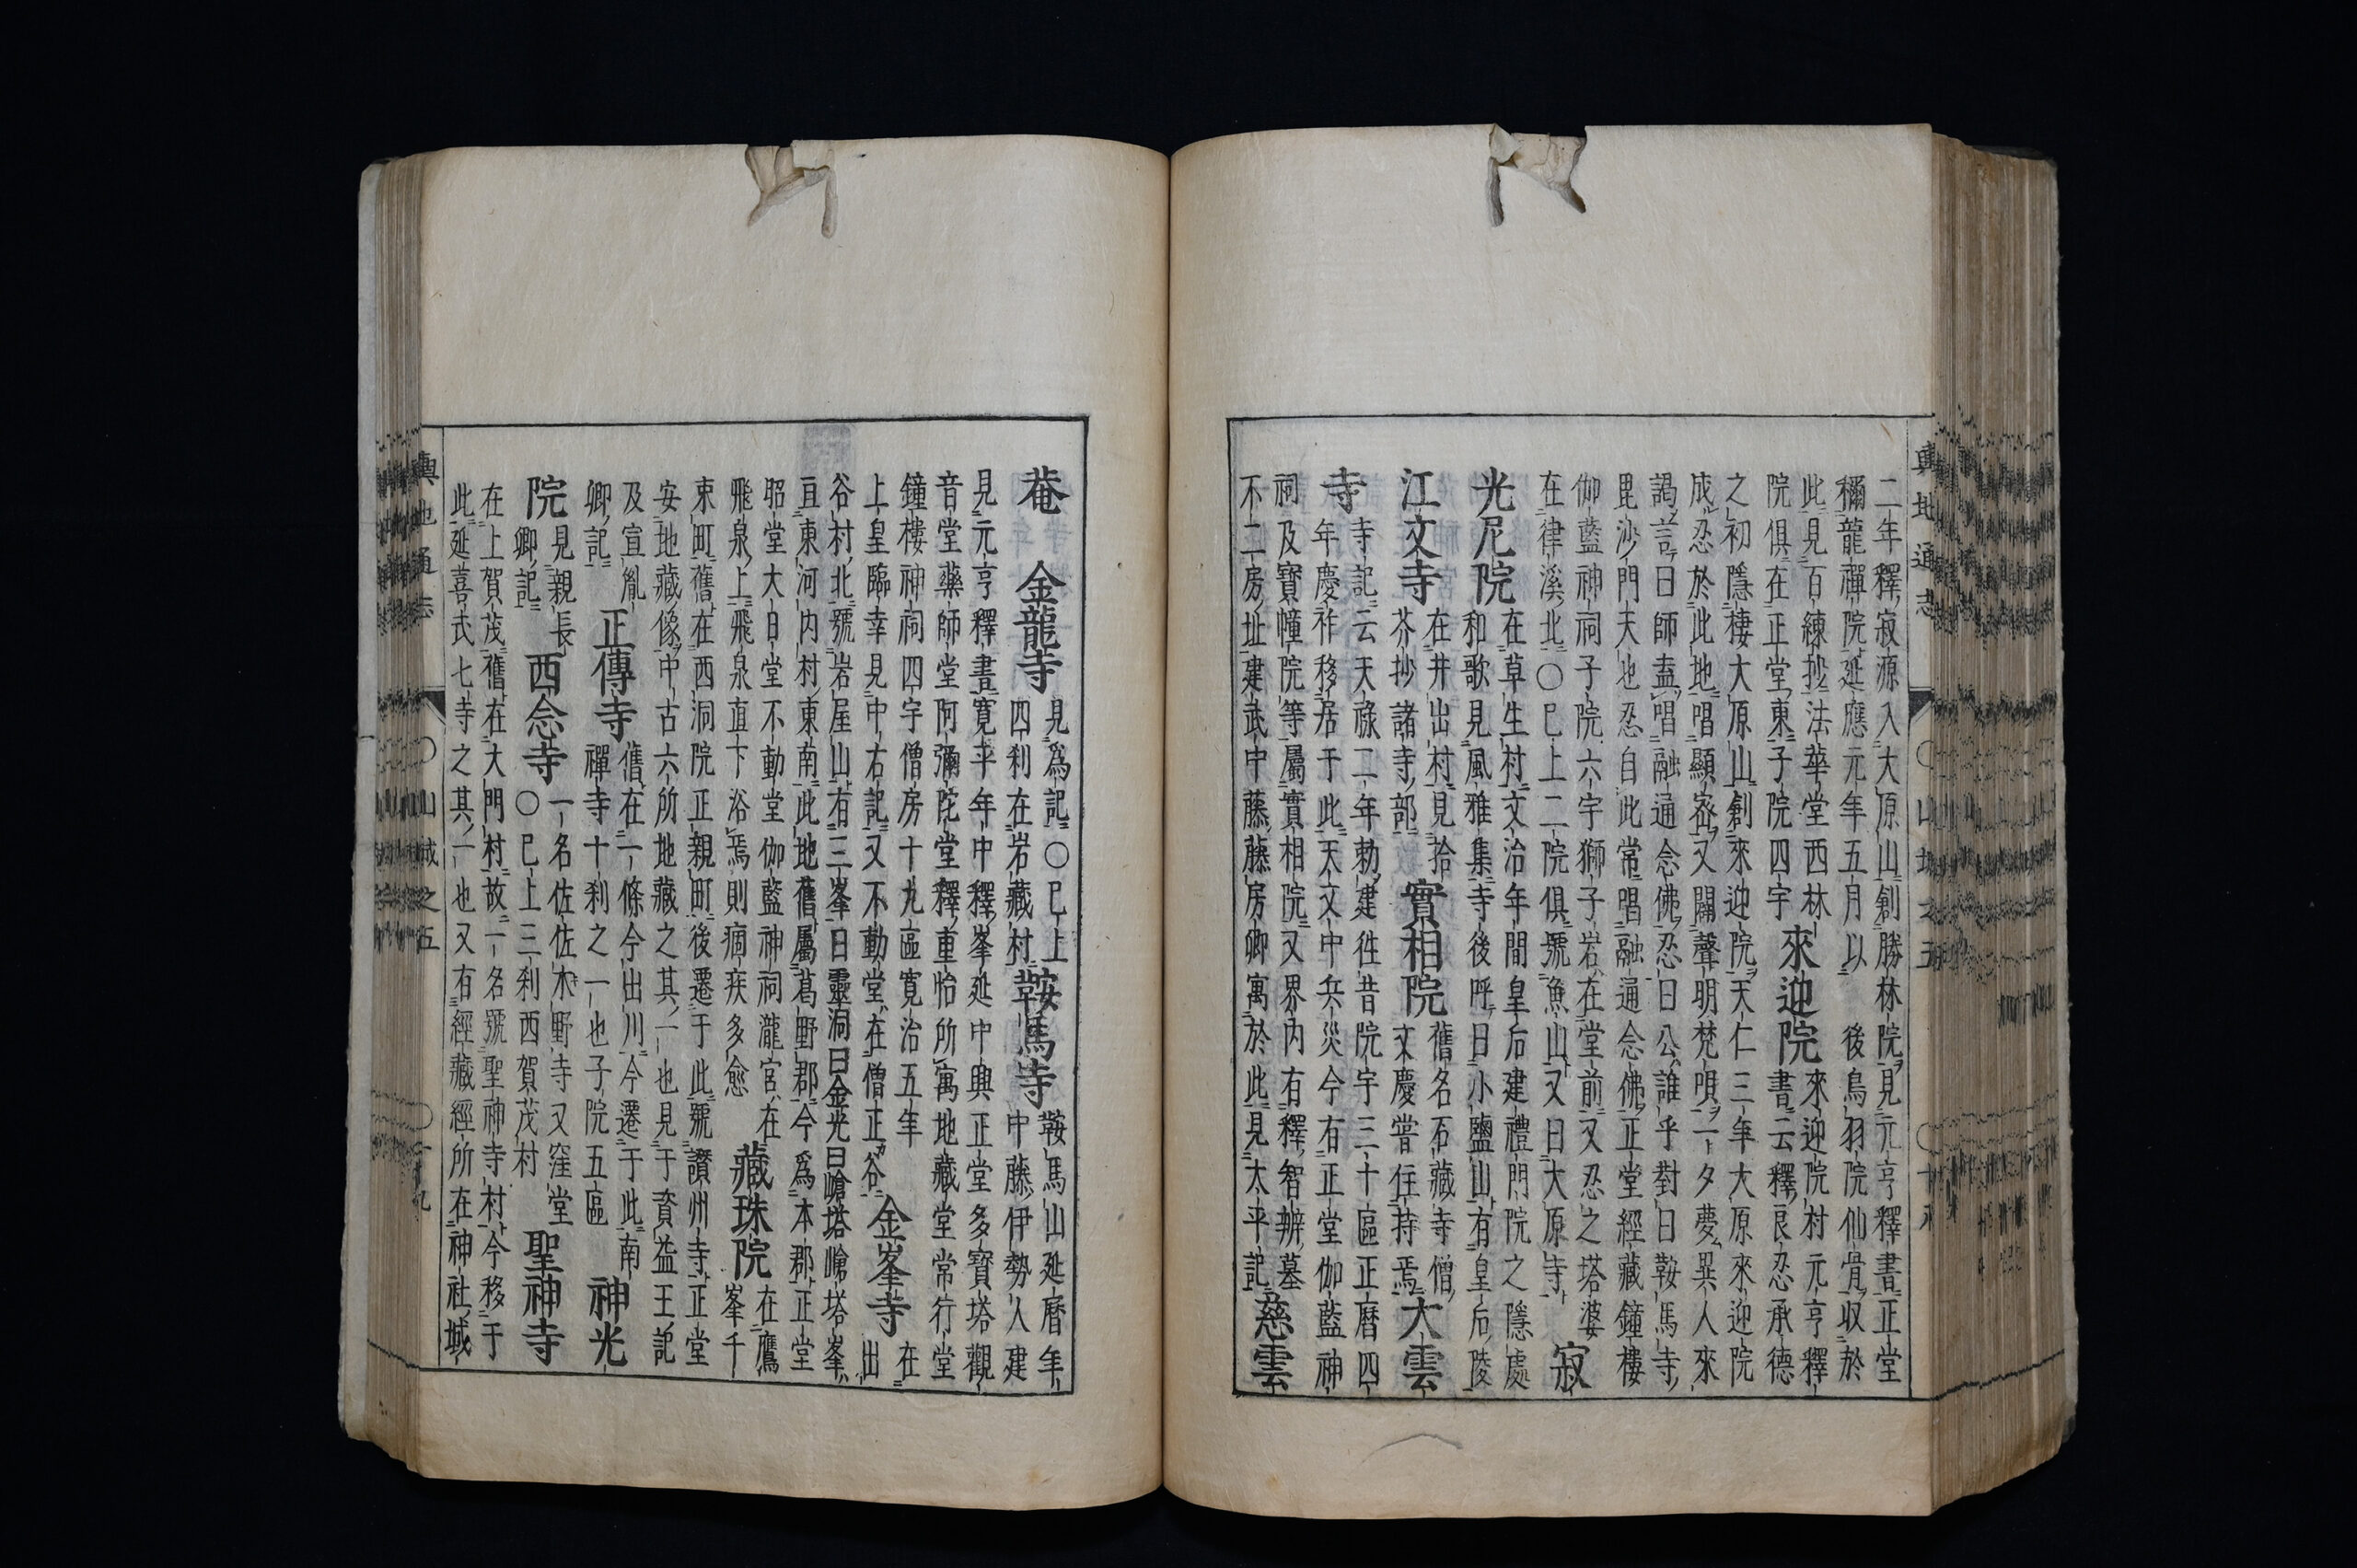 輿地通志 ○山城之五 ○十八
二年釋寂源入大原山創勝林院見元亨釋書正堂
彌龍禪院延應元年五月以 後鳥羽院仙骨収於
此見百練抄法華堂西林
院俱在正堂東子院四宇
來迎院
來迎院村元亨釋
書云釋良忍承德
之初隱棲大原山創來迎院天仁三年大原來迎院
成忍於此地唱顯密又闢聲明梵唄一夕夢異人來
謁言曰師盍唱融通念佛忍曰公誰乎對曰鞍馬寺
毘沙門天也忍自此常唱融通念佛正堂經藏鐘樓
伽藍神祠子院六宇獅子岩在堂前又忍之塔婆
在律溪北○已上二院俱號魚山又曰大原寺
寂
光尼院
在草生村文治年間皇后建禮門院之隱處
和歌見風雅集寺後呼曰小鹽山有皇后陵
江文寺
在井出村見拾
芥抄諸寺部
實相院
舊名石藏寺僧
文慶嘗住持焉
大雲
寺
寺記云天祿二年勅建徃昔院宇三十區正曆四
年慶祚移居于此天文中兵災今有正堂伽藍神
祠及寶幢院等屬實相院又界內有釋智辨墓
不二房址建武中藤藤房卿寓於此見太平記
慈雲
菴
金龍寺
見爲記○已上
四刹在岩藏村
鞍馬寺
鞍馬山延曆年
中藤伊勢人建
見元亨釋書寛平年中釋峯延中興正堂多寶塔觀
音堂藥師堂阿彌陀堂釋重怡所寓地藏堂常行堂
鐘樓神祠四宇僧房十九區寛治五年
上皇臨幸見中右記又不動堂在僧正谷
金峯寺
在
出
谷村北號岩屋山有三峯曰靈洞曰金光曰嶮塔嶮塔峯
直東河內村東南此地舊屬葛野郡今爲本郡正堂
昭堂大日堂不動堂伽藍神祠瀧宮在
飛泉上飛泉直下浴焉則痼疾多愈
藏珠院
在鷹
峯千
束町舊在西洞院正親町後遷于此號讃州寺正堂
安地藏像中古六所地藏之其一也見于資益王記
及宣胤
卿記
正傳寺
舊在一條今出川今遷于此南
禪寺十刹之一也子院五區
神光
院
見親長
卿記
西念寺
一名佐佐木野寺又窪堂
○已上三刹西賀茂村
聖神寺
在上賀茂舊在大門村故一名號聖神寺村今移于
此延喜式七寺之其一也又有經藏經所在神社域
輿地通志 ○山城之五 ○十九